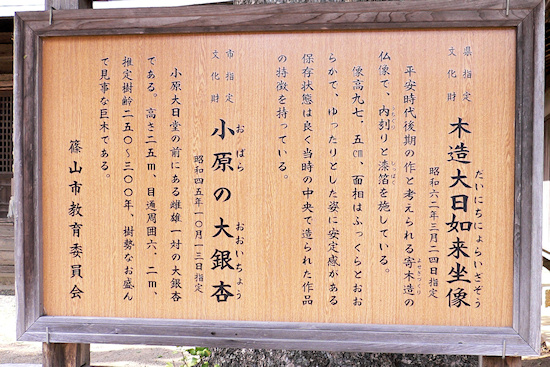 県指定
文化財
だいにちにょらいざぞう
木造大日如来坐像
昭和六二年三月二四日指定
平安時代後期の作と考えられる寄木造の
仏像で、内刳りと漆箔を施している。
像高九七、五㎝、面相はふっくらとおお
らかで、ゆったりとした姿に安定感がある
保存状態は良く当時の中央で造られた作品
の特徴を持っている。
市指定
文化財
おばら おおいちょう
小原の大銀杏
昭和四五年一〇月一三日指定
小原大日堂の前にある雌雄一対の大銀杏
である。高さ二五m、目通周囲六、二m、
推定樹齢二五〇〜三〇〇年、樹勢なお盛ん
で見事な巨木である。
篠山市教育委員会